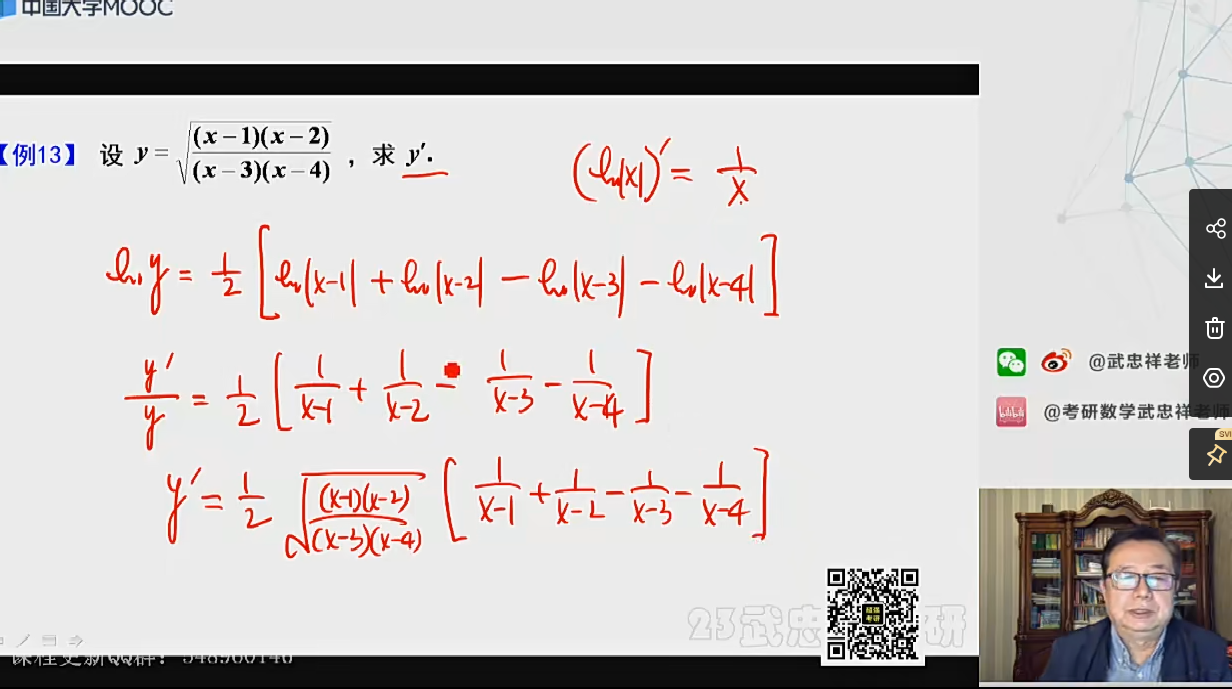 中国大学MOOC
【例13】 设 y = √((x-1)(x-2)/((x-3)(x-4))) ，求 y′.
(ln|x|)′ = 1/x
ln y = 1/2 [ln|x-1| + ln|x-2| - ln|x-3| - ln|x-4|]
y′/y = 1/2 [1/(x-1) + 1/(x-2) - 1/(x-3) - 1/(x-4)]
y′ = 1/2 √((x-1)(x-2)/((x-3)(x-4))) [1/(x-1) + 1/(x-2) - 1/(x-3) - 1/(x-4)]
@武忠祥老师
bilibili @考研数学武忠祥老师
SVI
23武忠 研
课程更新QQ群：